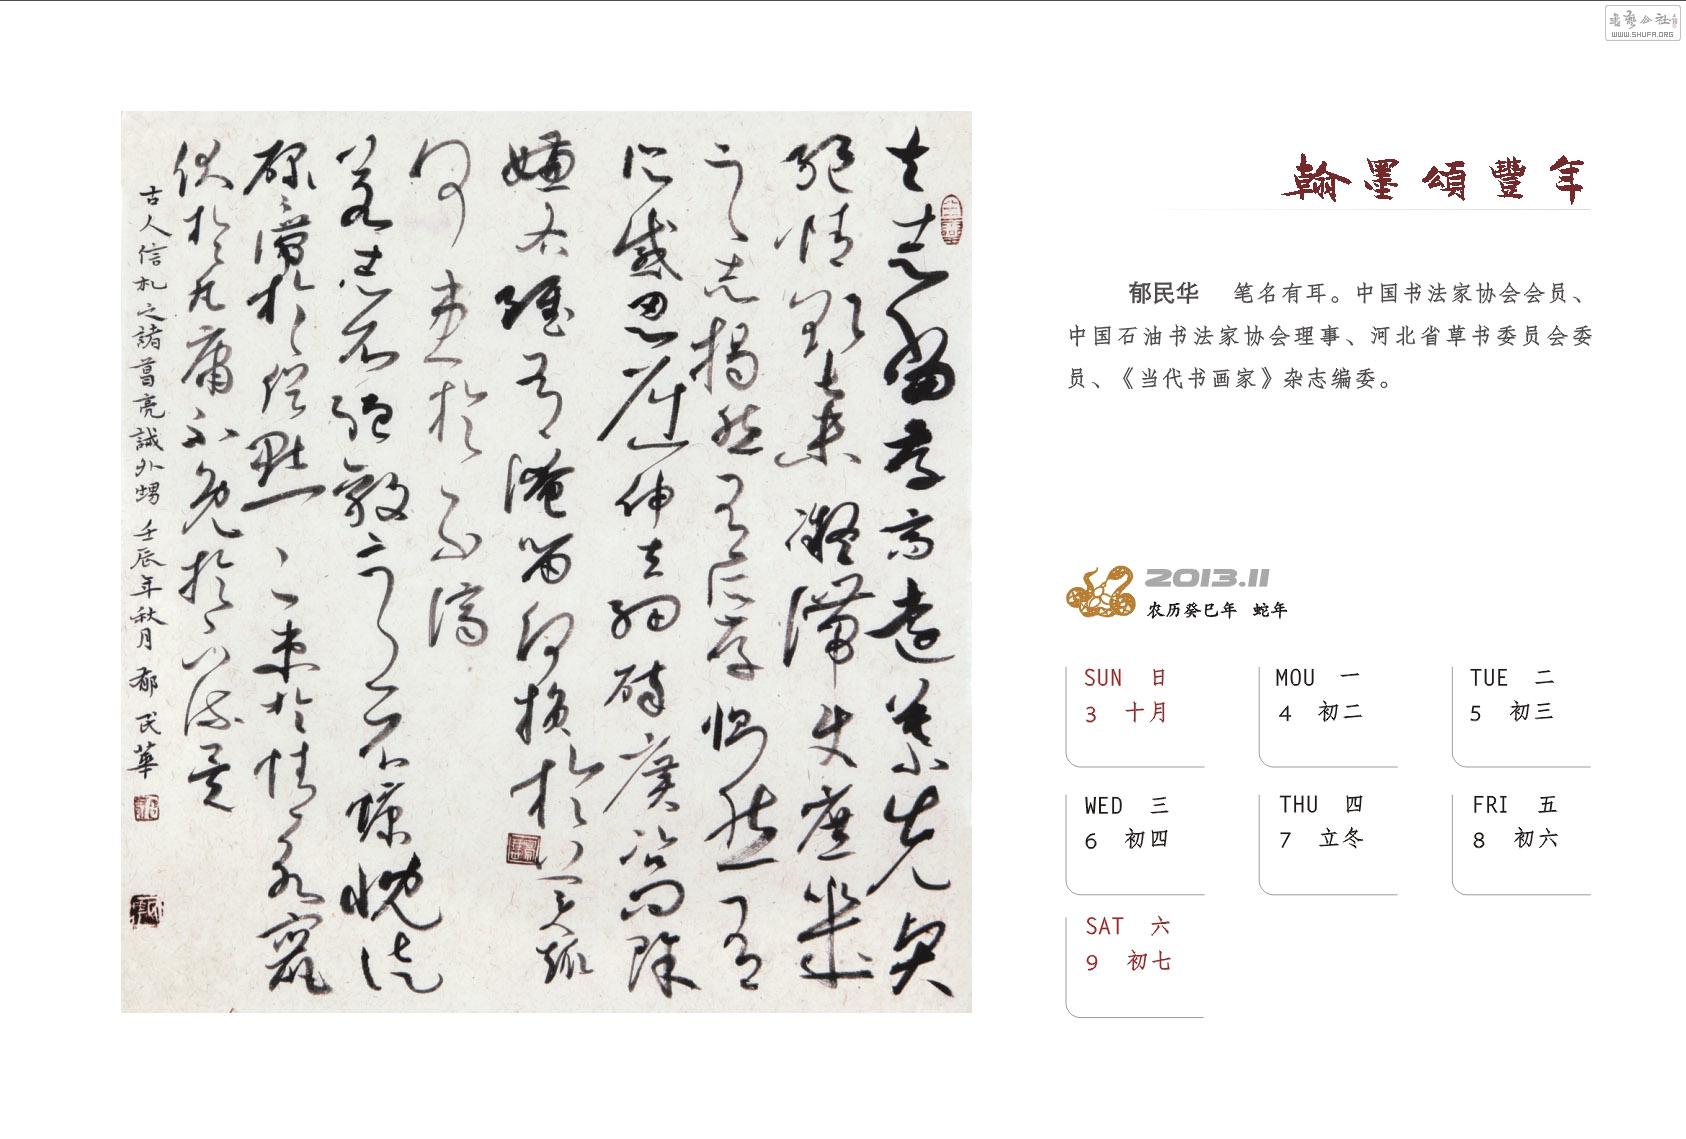 夫志當存高遠慕先賢
絕情欲棄凝滯使庶幾
之志揭然有所存惻然有
所感忍屈伸去細碎廣咨問除
嫌吝雖有淹留何損於美趣
何患於不濟
若志不強毅意不慷慨徒
碌碌滯於俗默默束於情永竄
伏於凡庸不免於下流矣
古人信札之諸葛亮誡外甥 壬辰年秋月 郁民華
WWW.SHUFA.ORG
翰墨頌豐年
郁民华 笔名有耳。中国书法家协会会员、
中国石油书法家协会理事、河北省草书委员会委
员、《当代书画家》杂志编委。
2013.11
农历癸巳年 蛇年
SUN 日
3 十月
MOU 一
4 初二
TUE 二
5 初三
WED 三
6 初四
THU 四
7 立冬
FRI 五
8 初六
SAT 六
9 初七